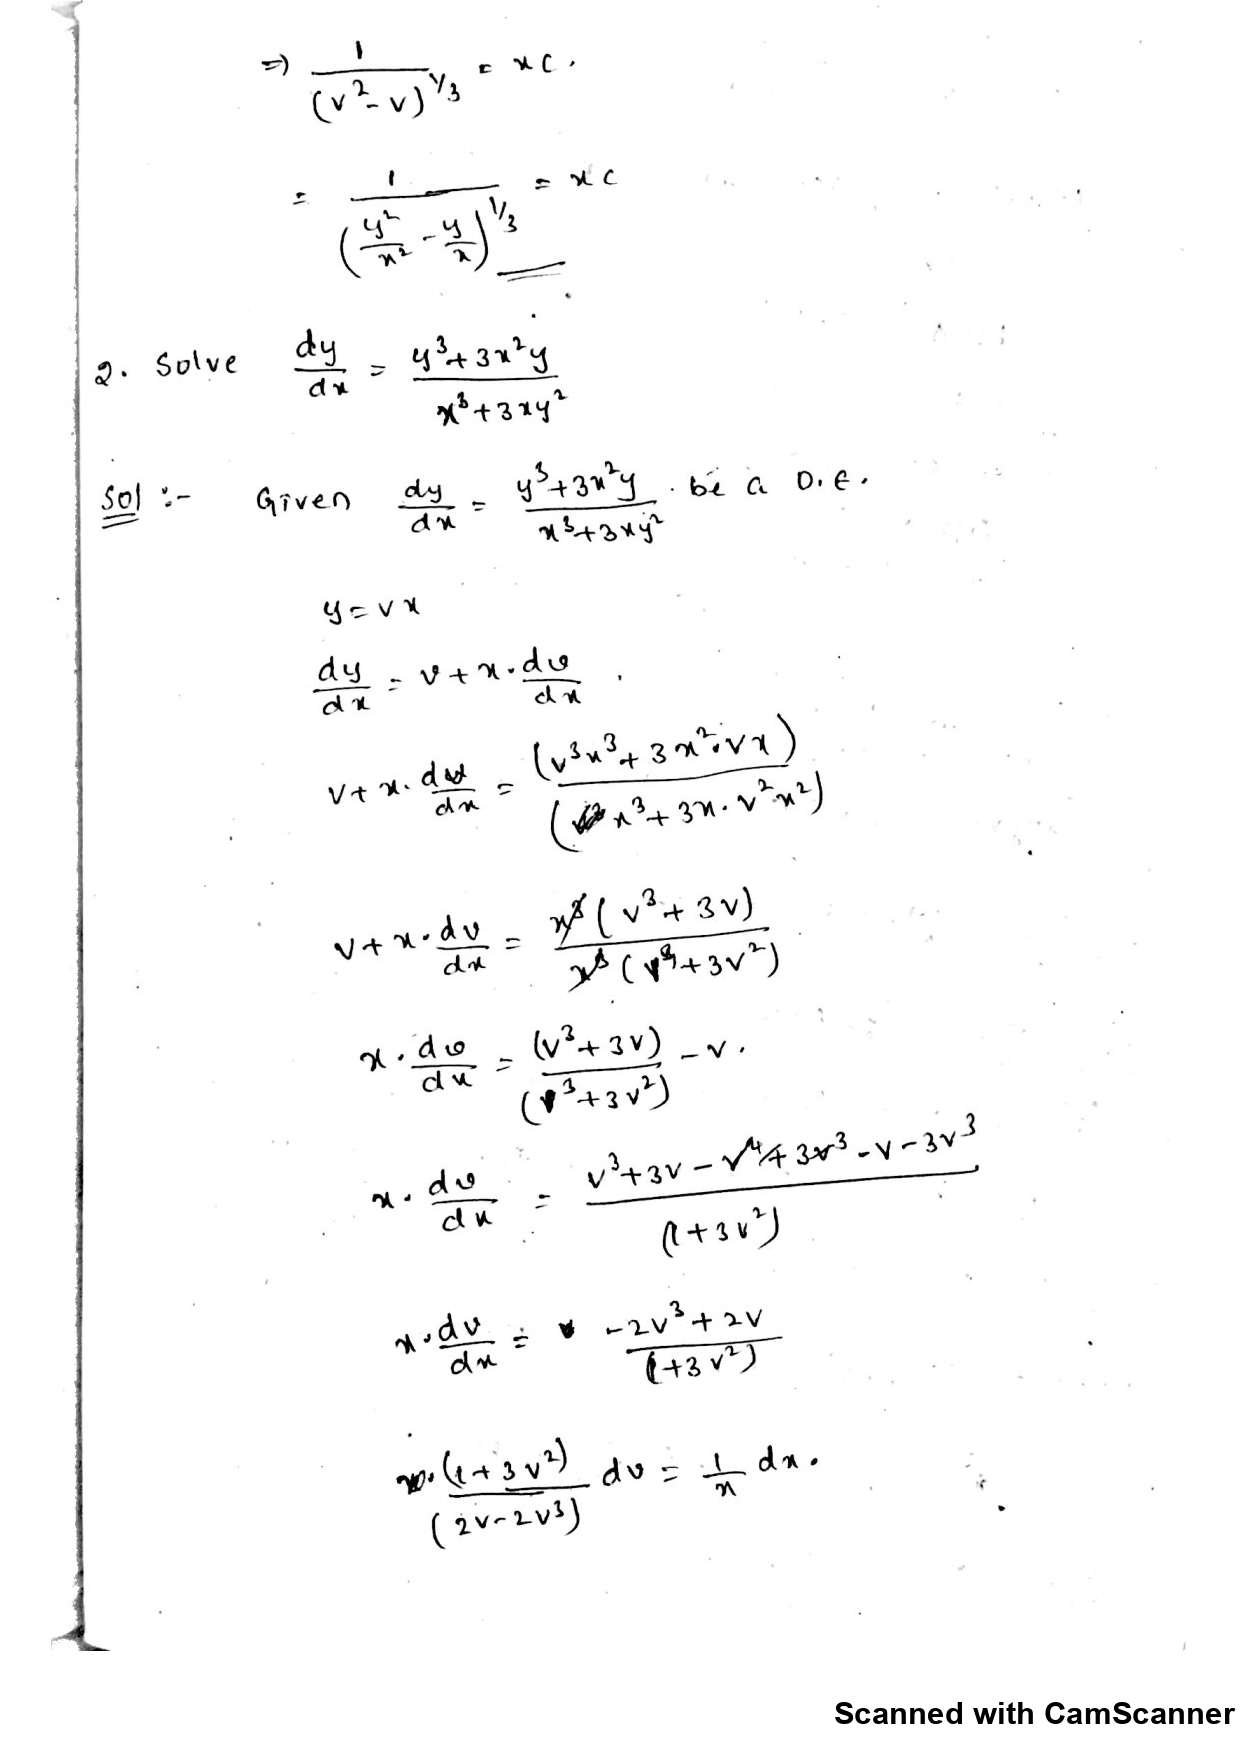 ⇒ 1/(v² - v)^1/3 = xc.
= 1/(y²/x² - y/x)^1/3 = xc
2. Solve dy/dx = (y³+3x²y)/(x³+3xy²)
Sol :- Given dy/dx = (y³+3x²y)/(x³+3xy²) . be a D.E.
y = vx
dy/dx = v + x. dv/dx .
v + x. dv/dx = (v³x³ + 3x².vx)/(x³ + 3x. v².x²)
v + x. dv/dx = x³(v³ + 3v)/x³(v³ + 3v²)
x. dv/dx = (v³+3v)/(v³+3v²) - v.
x. dv/dx = (v³+3v - v⁴+3v³ - v - 3v³)/(1+3v²)
x. dv/dx = (-2v³+2v)/(1+3v²)
(1+3v²)/(2v-2v³) dv = 1/x dx.
Scanned with CamScanner